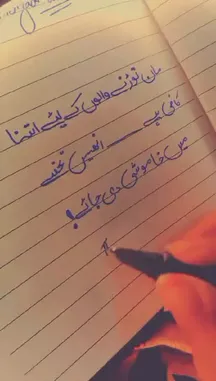 مان توڑنے والوں کے لیئے اتنا
کافی ہے ــــــ انھیں تحفے
میں خاموشی دی جائے!